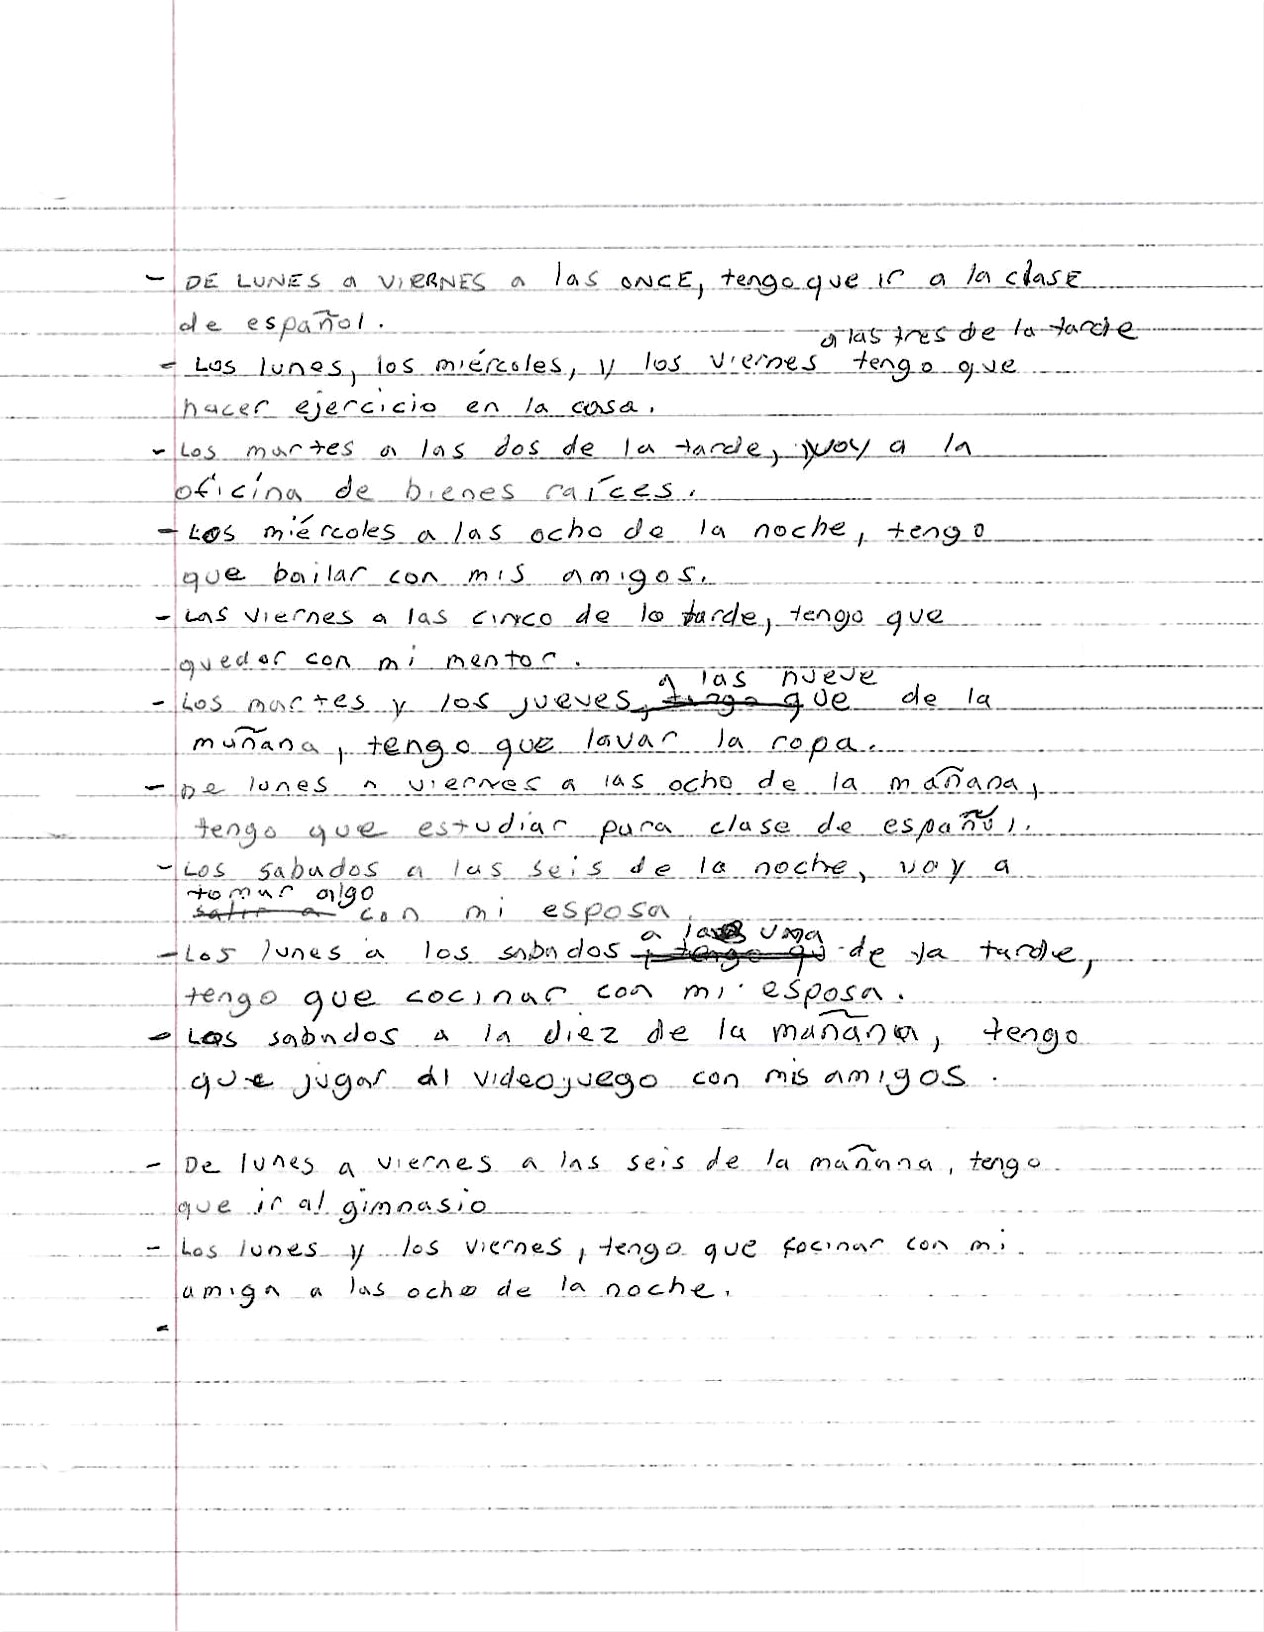 - DE LUNES a VIERNES a las ONCE, tengo que ir a la clase
de español.
a las tres de la tarde
- Los lunes, los miércoles, y los viernes tengo que
hacer ejercicio en la casa.
- Los martes a las dos de la tarde, voy a la
oficina de bienes raíces.
- Los miércoles a las ocho de la noche, tengo
que bailar con mis amigos.
- Los viernes a las cinco de la tarde, tengo que
quedar con mi mentor.
a las nueve
- Los martes y los jueves, tengo que de la
mañana, tengo que lavar la ropa.
- De lunes a viernes a las ocho de la mañana,
tengo que estudiar para clase de español.
- Los sabados a las seis de la noche, voy a
tomar algo
salir a con mi esposa.
a la una
- Los lunes a los sabados, tengo qu de la tarde,
tengo que cocinar con mi esposa.
- Los sabados a la diez de la mañana, tengo
que jugar al videojuego con mis amigos.
- De lunes a viernes a las seis de la mañana, tengo
que ir al gimnasio
- Los lunes y los viernes, tengo que cocinar con mi
amiga a las ocho de la noche.
-